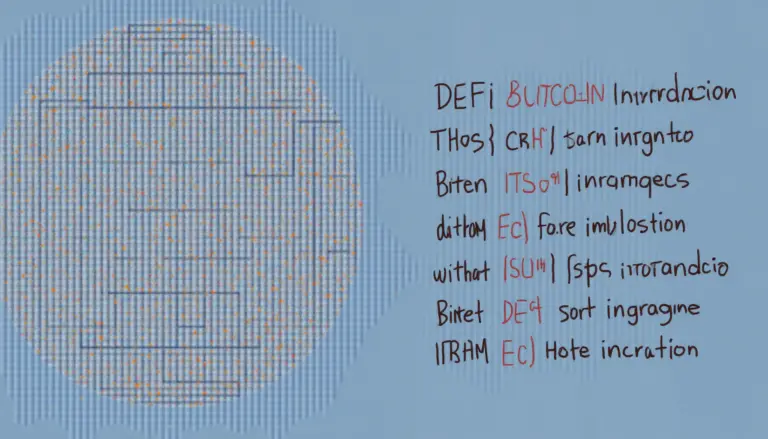 DEFi BUTCO-IN Invrrdncion
THos} CRH / tarn inrgnto
Biten ITSo | inramqecs
dithom Ec) fo.re imblostion
withat ISU | Isps irotandcio
Bintet DE sort ingragine
Ec) Hote incration